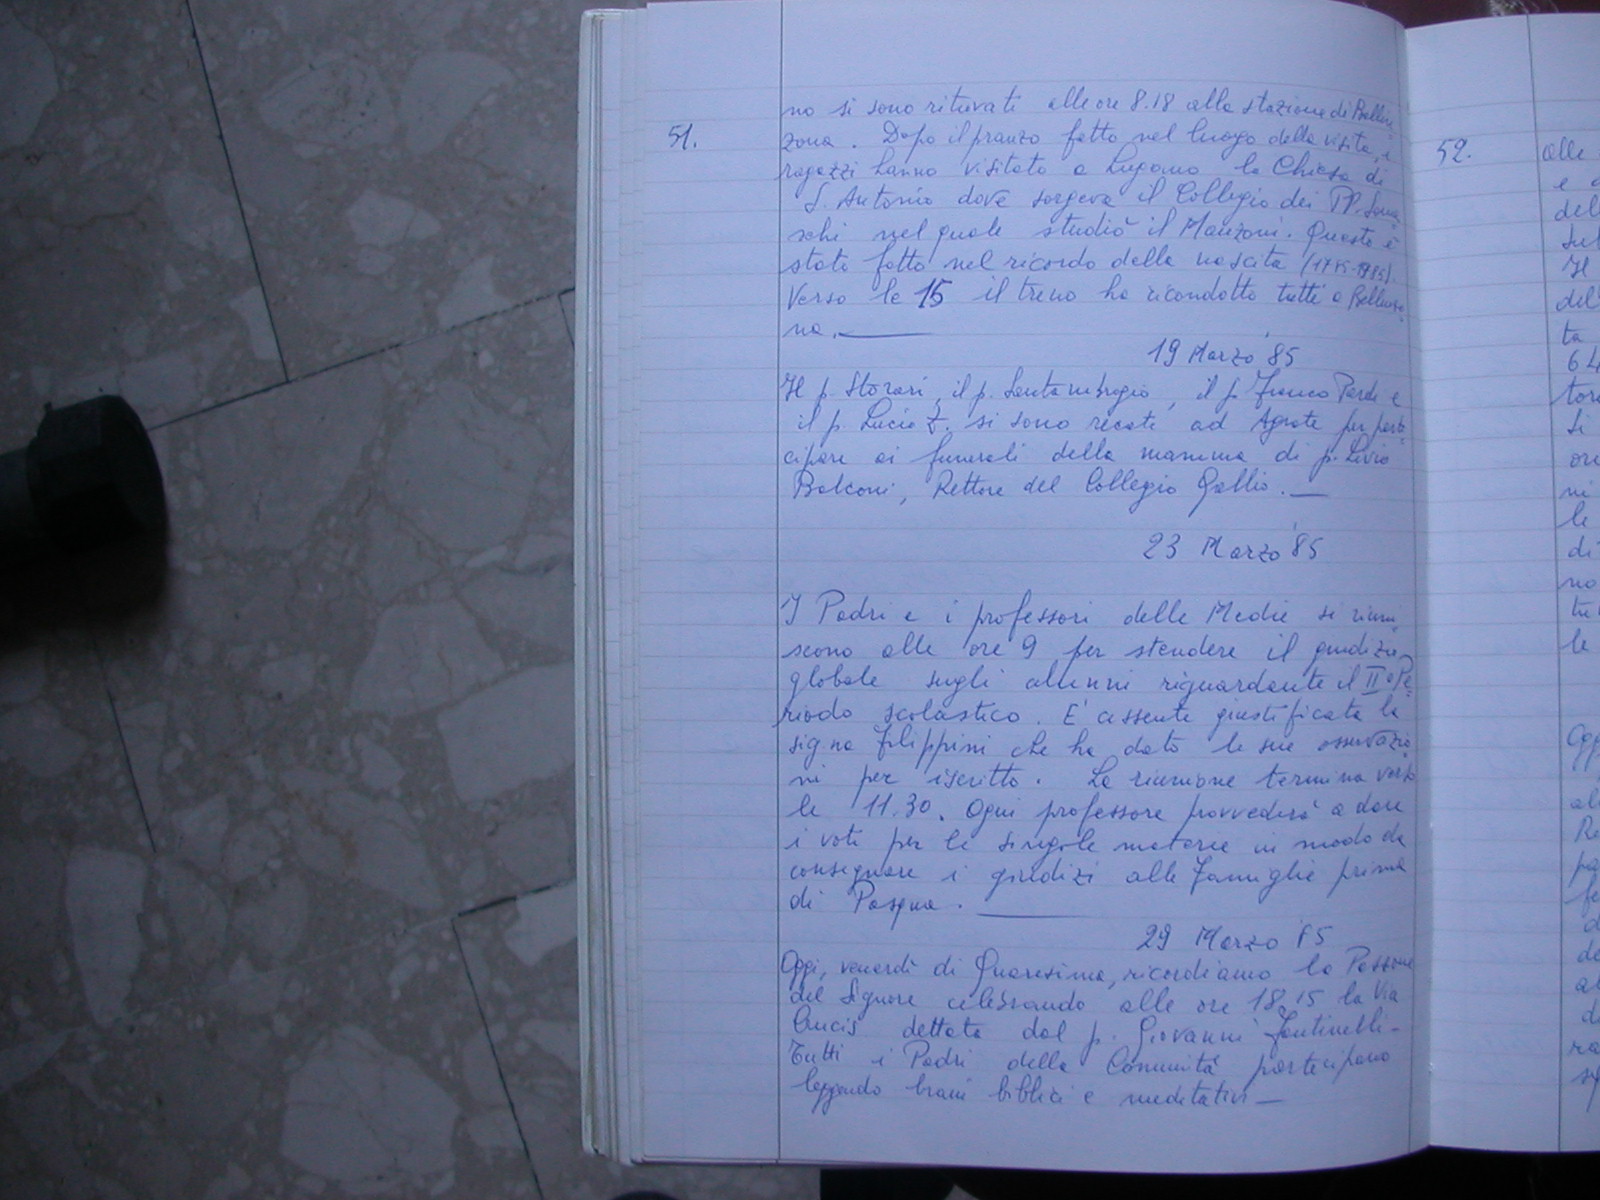 51.
no si sono ritrovati alle ore 8.18 alla stazione di Bellin
zona. Dopo il pranzo fatto nel luogo della visita, i
ragazzi hanno visitato a Lugano la Chiesa di
S. Antonio dove sorgeva il Collegio dei PP. Soma
schi nel quale studiò il Manzoni. Questo è
stato fatto nel ricordo della nascita (1785-1985).
Verso le 15 il treno ha ricondotto tutti a Bellinzo
na.
19 Marzo '85
Il p. Storari, il p. Santambrogio, il p. Franco
il p. Lucio Z. si sono recati ad Agrate per parte
cipare ai funerali della mamma di p. Livio
Balconi, Rettore del Collegio Gallio.
23 Marzo '85
I Padri e i professori delle Medie si riuni
scono alle ore 9 per stendere il giudizio
globale sugli alunni riguardante il II° Pe
riodo scolastico. E' assente giustificata la
sig.na Filippini che ha dato le sue osservazio
ni per iscritto. La riunione termina verso
le 11.30. Ogni professore provvederà a dare
i voti per le singole materie in modo da
consegnare i giudizi alle famiglie prima
di Pasqua.
29 Marzo '85
Oggi, venerdì di Quaresima, ricordiamo la Passione
del Signore celebrando alle ore 18,15 la Via
Crucis dettata dal p. Giovanni
Tutti i Padri della Comunità partecipano
leggendo brani biblici e meditativi
52.
alle
e
del
Il
del
ta
64
Si
ni
le
di
no
le
Ogg